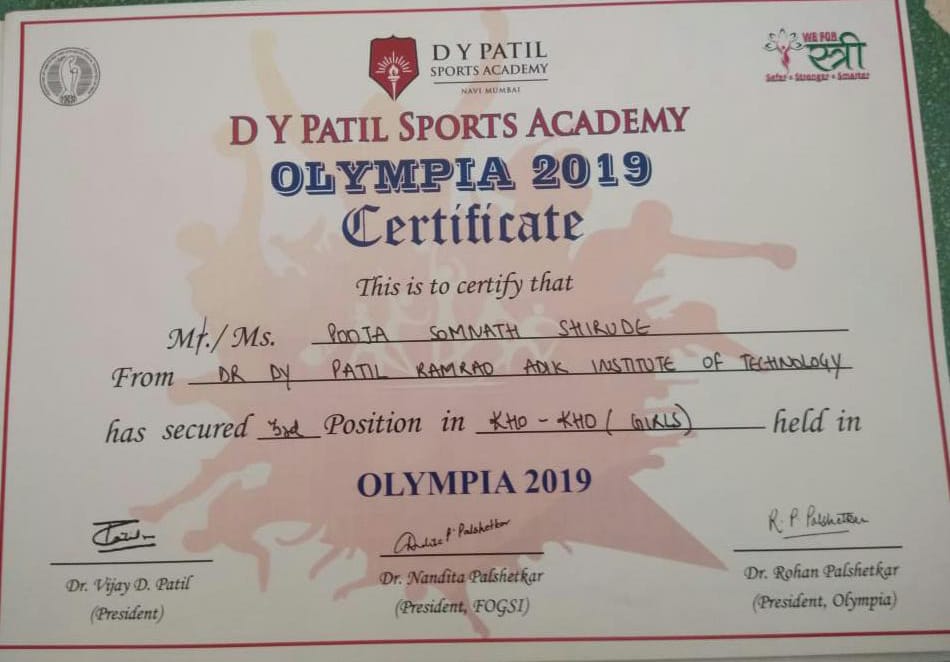 D Y PATIL
SPORTS ACADEMY
NAVI MUMBAI
WE FOR
स्त्री
Safer • Stronger • Smarter
D Y PATIL SPORTS ACADEMY
OLYMPIA 2019
Certificate
This is to certify that
Mr./ Ms. POOJA SOMNATH SHIRUDE
From DR DY PATIL RAMRAO ADIK INSTITUTE OF TECHNOLOGY
has secured 3rd Position in KHO - KHO ( GIRLS) held in
OLYMPIA 2019
P. Palshetkar
R. P. Palshetkar
Dr. Vijay D. Patil
(President)
Dr. Nandita Palshetkar
(President, FOGSI)
Dr. Rohan Palshetkar
(President, Olympia)